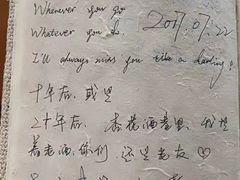 Whenever you go
2017.09.22
Whatever you do.
I'll always miss you like a darling!
十年后, 或是
二十年后,
我想
着老酒, 你们, 还是老友 ♡